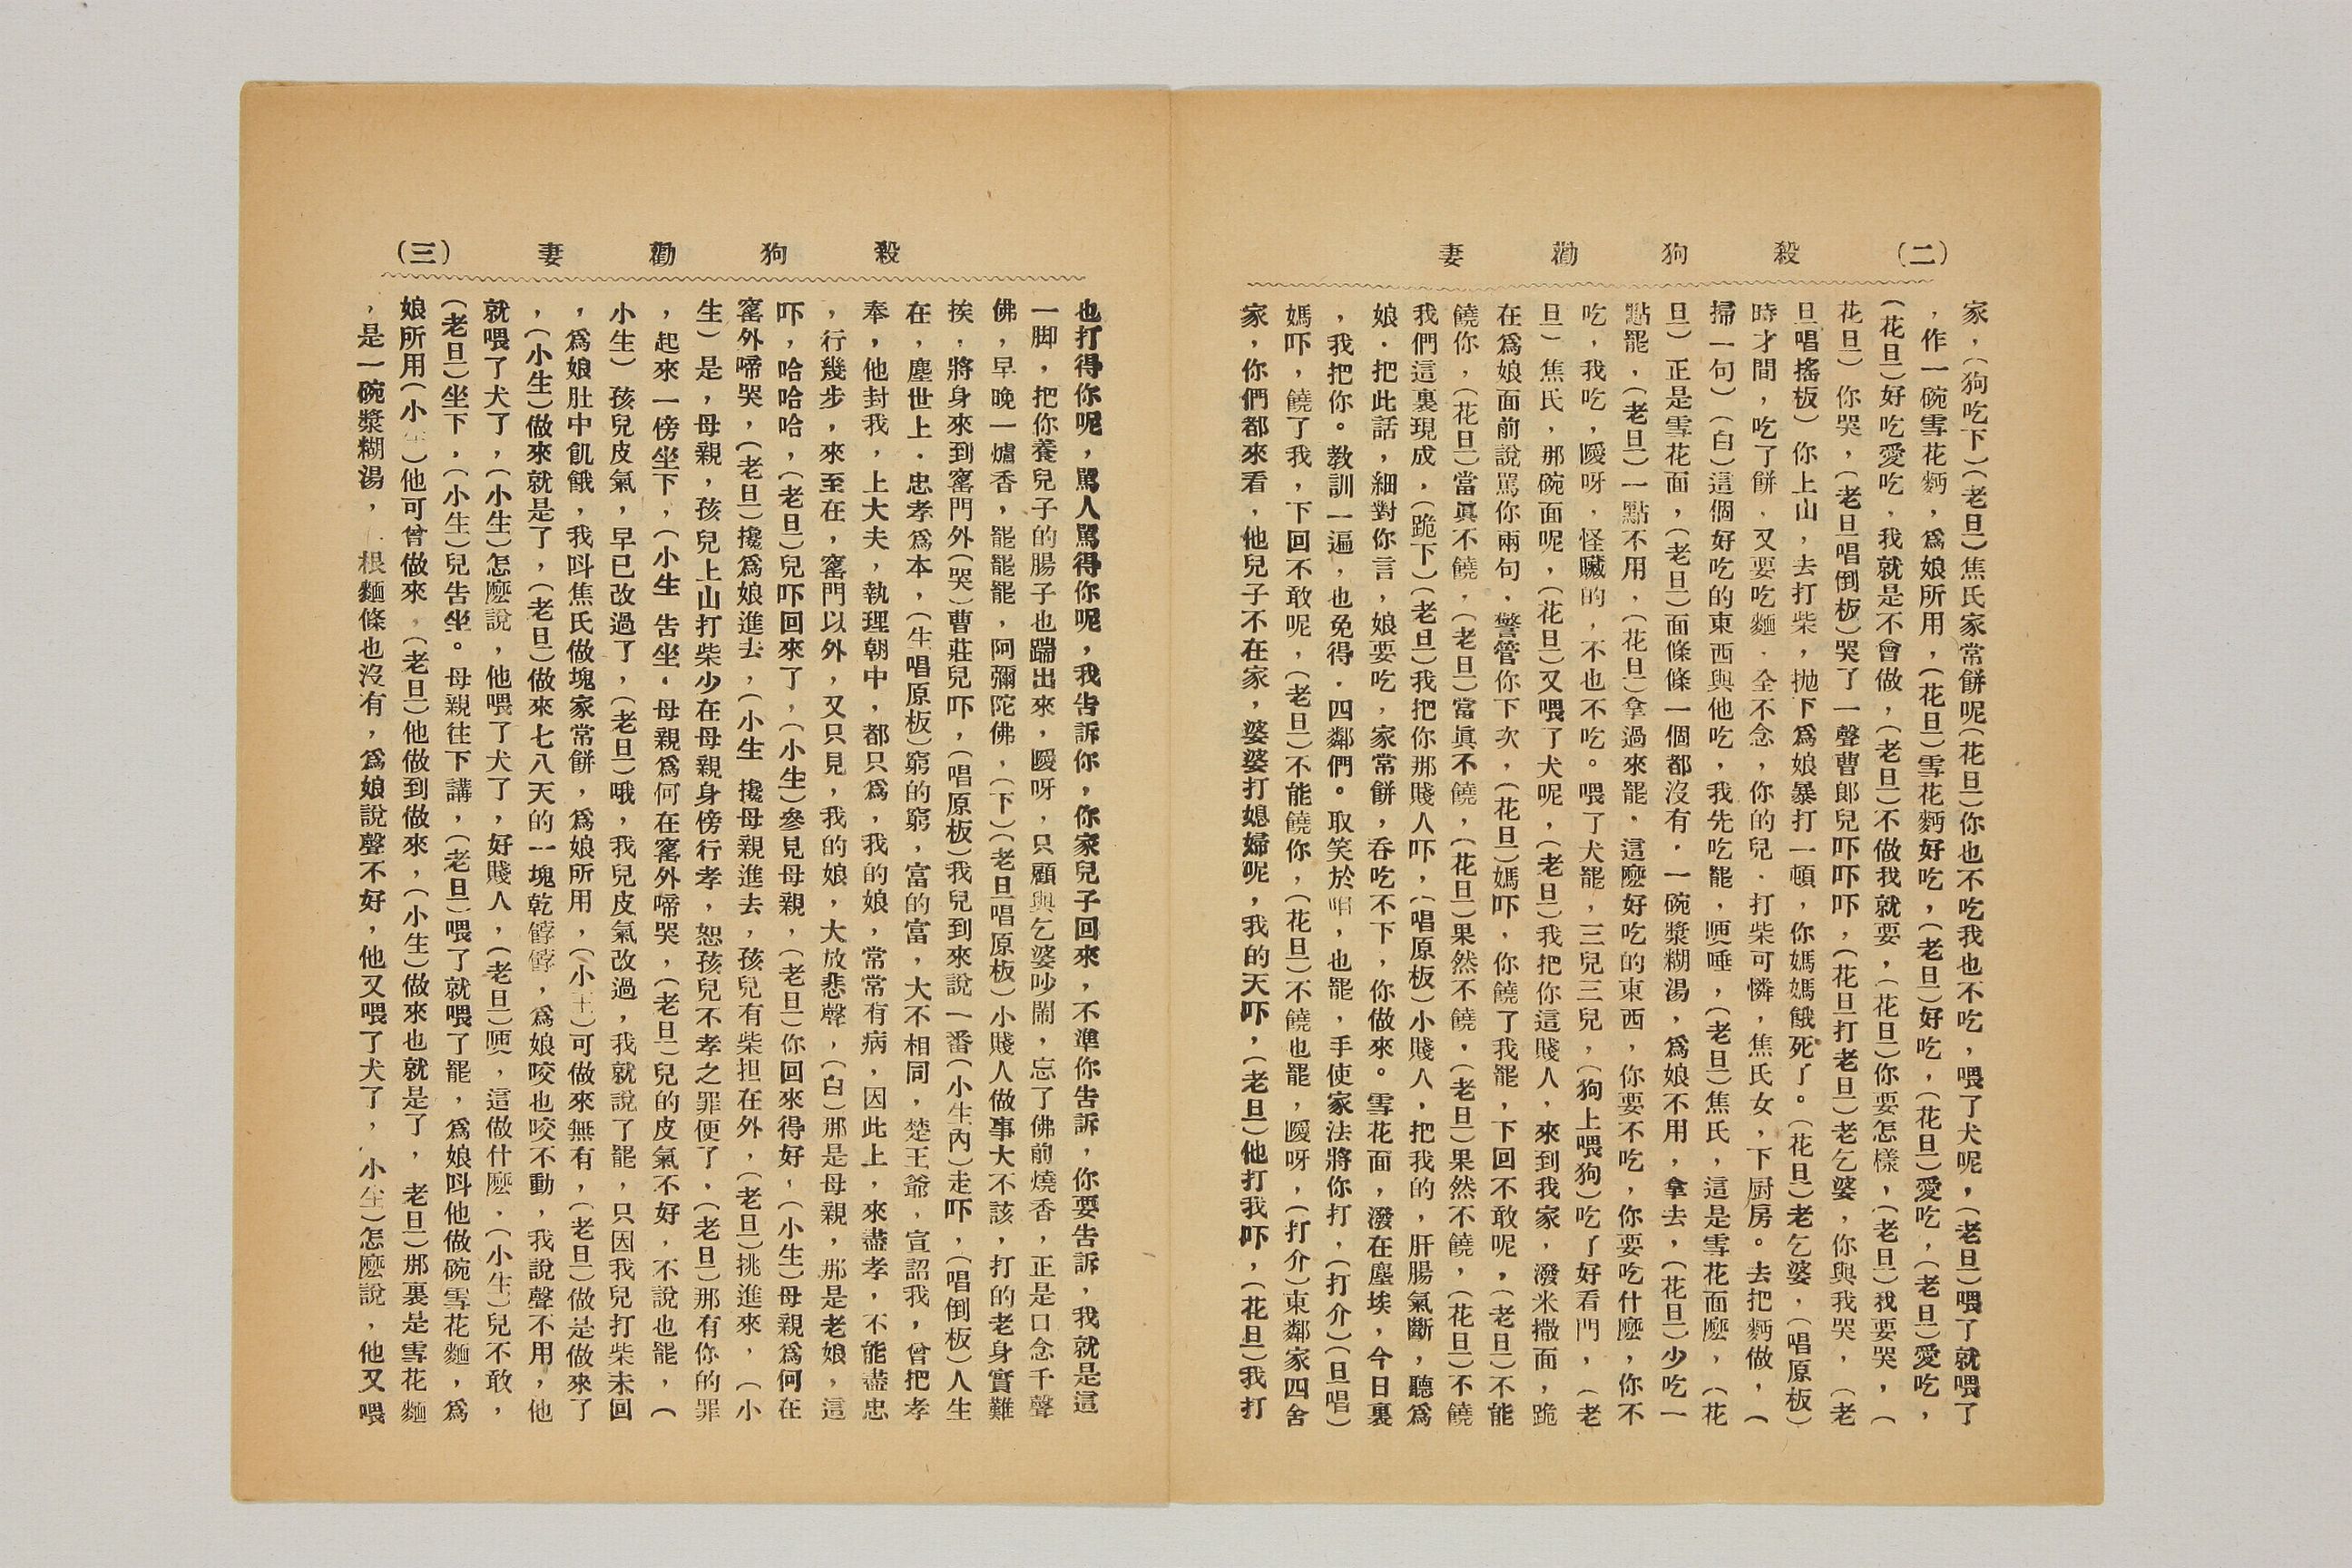 (二) 殺狗勸妻
家，(狗吃下)(老旦)焦氏家常餅呢(花旦)你也不吃我也不吃，喂了犬呢，(老旦)喂了就喂了
，作一碗雪花麪，爲娘所用，(花旦)雪花麪好吃，(老旦)好吃，(花旦)愛吃，(老旦)愛吃，
(花旦)好吃愛吃．我就是不會做，(老旦)不做我就要，(花旦)你要怎樣，(老旦)我要哭，(
花旦) 你哭，(老旦唱倒板)哭了一聲曹郎兒吓吓吓，(花旦打老旦)老乞婆，你與我哭，(老
旦唱搖板) 你上山，去打柴，抛下爲娘暴打一頓，你媽媽餓死了。(花旦)老乞婆，(唱原板)
時才間，吃了餅．又要吃麵．全不念，你的兒．打柴可憐，焦氏女，下厨房。去把麪做，(
掃一句)(白)這個好吃的東西與他吃，我先吃罷，㖭唾，(老旦)焦氏，這是雪花面麽，(花
旦) 正是雪花面，(老旦)面條條一個都沒有．一碗漿糊湯，爲娘不用，拿去，(花旦)少吃一
點罷，(老旦)一點不用．(花旦)拿過來罷．這麽好吃的東西，你要不吃，你要吃什麽，你不
吃，我吃，噯呀．怪贜的，不也不吃。喂了犬罷，三兒三兒，(狗上喂狗)吃了好看門，(老
旦) 焦氏，那碗面呢，(花旦)又喂了犬呢，(老旦)我把你這賤人，來到我家，潑米撒面，跪
在爲娘面前說罵你兩句．警管你下次，(花旦)媽吓．你饒了我罷，下回不敢呢，(老旦)不能
饒你，(花旦)當眞不饒．(老旦)當眞不饒，(花旦)果然不饒．(老旦)果然不饒，(花旦)不饒
我們這裏現成，(跪下)(老旦)我把你那賤人吓，(唱原板)小賤人，把我的，肝腸氣斷，聽爲
娘．把此話，細對你言，娘要吃，家常餅，吞吃不下，你做來。雪花面，潑在塵埃，今日裏
，我把你。教訓一遍，也免得．四鄰們。取笑於咱，也罷，手使家法將你打，(打介)(旦唱)
媽吓，饒了我，下回不敢呢，(老旦)不能饒你，(花旦)不饒也罷，噯呀，(打介)東鄰家四舍
家，你們都來看，他兒子不在家，婆婆打媳婦呢，我的天吓，(老旦)他打我吓，(花旦)我打
殺狗勸妻 (三)
也打得你呢，罵人罵得你呢，我告訴你，你家兒子回來，不準你告訴，你要告訴，我就是這
一脚，把你養兒子的腸子也踹出來，噯呀，只顧與乞婆吵鬧，忘了佛前燒香，正是口念千聲
佛，早晚一爐香，罷罷罷，阿彌陀佛，(下)(老旦唱原板)小賤人做事大不該，打的老身實難
挨．將身來到窰門外(哭)曹莊兒吓，(唱原板)我兒到來說一番(小生內)走吓，(唱倒板)人生
在，塵世上．忠孝爲本，(生唱原板)窮的窮，富的富，大不相同，楚王爺，宣詔我，曾把孝
奉，他封我，上大夫，執理朝中．都只爲，我的娘，常常有病，因此上，來盡孝，不能盡忠
，行幾步，來至在，窰門以外，又只見，我的娘，大放悲聲，(白)那是母親，那是老娘，這
吓，哈哈哈，(老旦)兒吓回來了，(小生)參見母親，(老旦)你回來得好，(小生)母親爲何在
窰外啼哭，(老旦)攙爲娘進去，(小生 攙母親進去，孩兒有柴担在外，(老旦)挑進來，(小
生) 是，母親，孩兒上山打柴少在母親身傍行孝，恕孩兒不孝之罪便了，(老旦)那有你的罪
，起來一傍坐下，(小生 告坐．母親爲何在窰外啼哭，(老旦)兒的皮氣不好，不說也罷，(
小生) 孩兒皮氣，早已改過了，(老旦)哦，我兒皮氣改過，我就說了罷，只因我兒打柴未回
，爲娘肚中飢餓，我呌焦氏做塊家常餅，爲娘所用，(小生)可做來無有，(老旦)做是做來了
，(小生)做來就是了，(老旦)做來七八天的一塊乾餑餑，爲娘咬也咬不動，我說聲不用，他
就喂了犬了，(小生)怎麽說，他喂了犬了，好賤人，(老旦)㖭，這做什麽．(小生)兒不敢，
(老旦)坐下，(小生)兒告坐。母親往下講，(老旦)喂了就喂了罷，爲娘呌他做碗雪花麵，爲
娘所用(小生)他可曾做來，(老旦)他做到做來，(小生)做來也就是了， 老旦)那裏是雪花麵
，是一碗漿糊湯，根麵條也沒有，爲娘說聲不好，他又喂了犬了，小生)怎麽說，他又喂